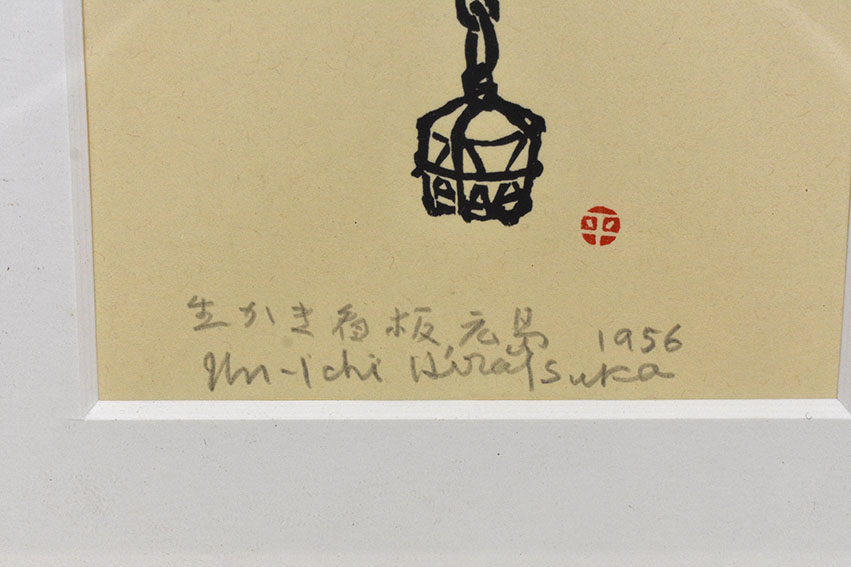 平
生かき看板, 広島 1956
Un-Ichi Hiratsuka